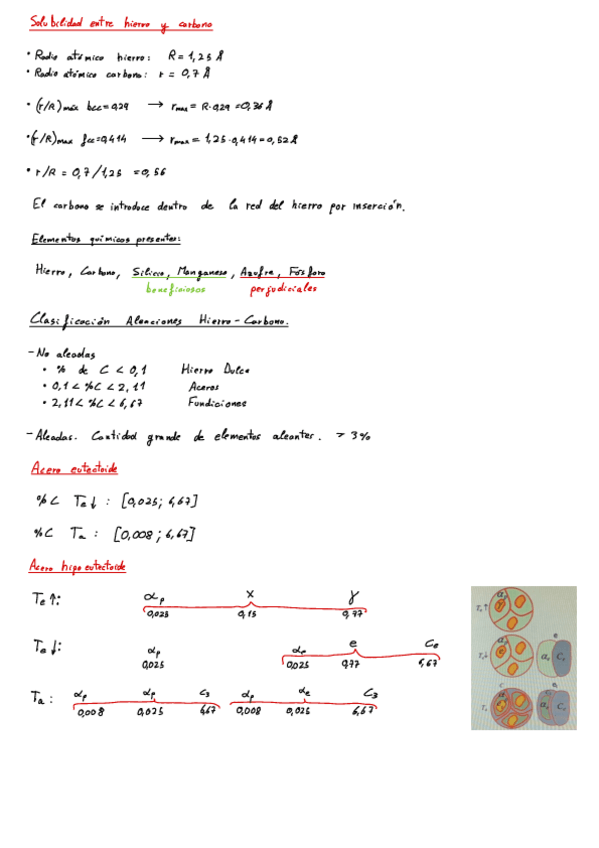 Solubilidad entre hierro y carbono
• Radio atómico hierro: R = 1,25 Å
• Radio atómico carbono: r = 0,7 Å
• (r/R)máx bcc=0,29 → rmax = R·0,29 = 0,36 Å
• (r/R)max fcc=0,414 → rmax = 1,25·0,414 = 0,52 Å
• r/R = 0,7/1,25 = 0,56
El carbono se introduce dentro de la red del hierro por inserción.
Elementos químicos presentes:
Hierro, Carbono, Silicio, Manganeso, Azufre, Fósforo
beneficiosos perjudiciales
Clasificación Aleaciones Hierro-Carbono.
- No aleadas
• % de C < 0,1 Hierro Dulce
• 0,1 < %C < 2,11 Aceros
• 2,11 < %C < 6,67 Fundiciones
- Aleadas. Cantidad grande de elementos aleantes. > 3%
Acero eutectoide
%C Te↓ : [0,025; 6,67]
%C Ta : [0,008; 6,67]
Acero hipoeutectoide
Te↑: αp x γ
0,025 0,15 0,77
Te↓: αp αp e Ce
0,025 0,025 0,77 6,67
Ta: αp αp C3 αp αe C3
0,008 0,025 6,67 0,008 0,025 6,67